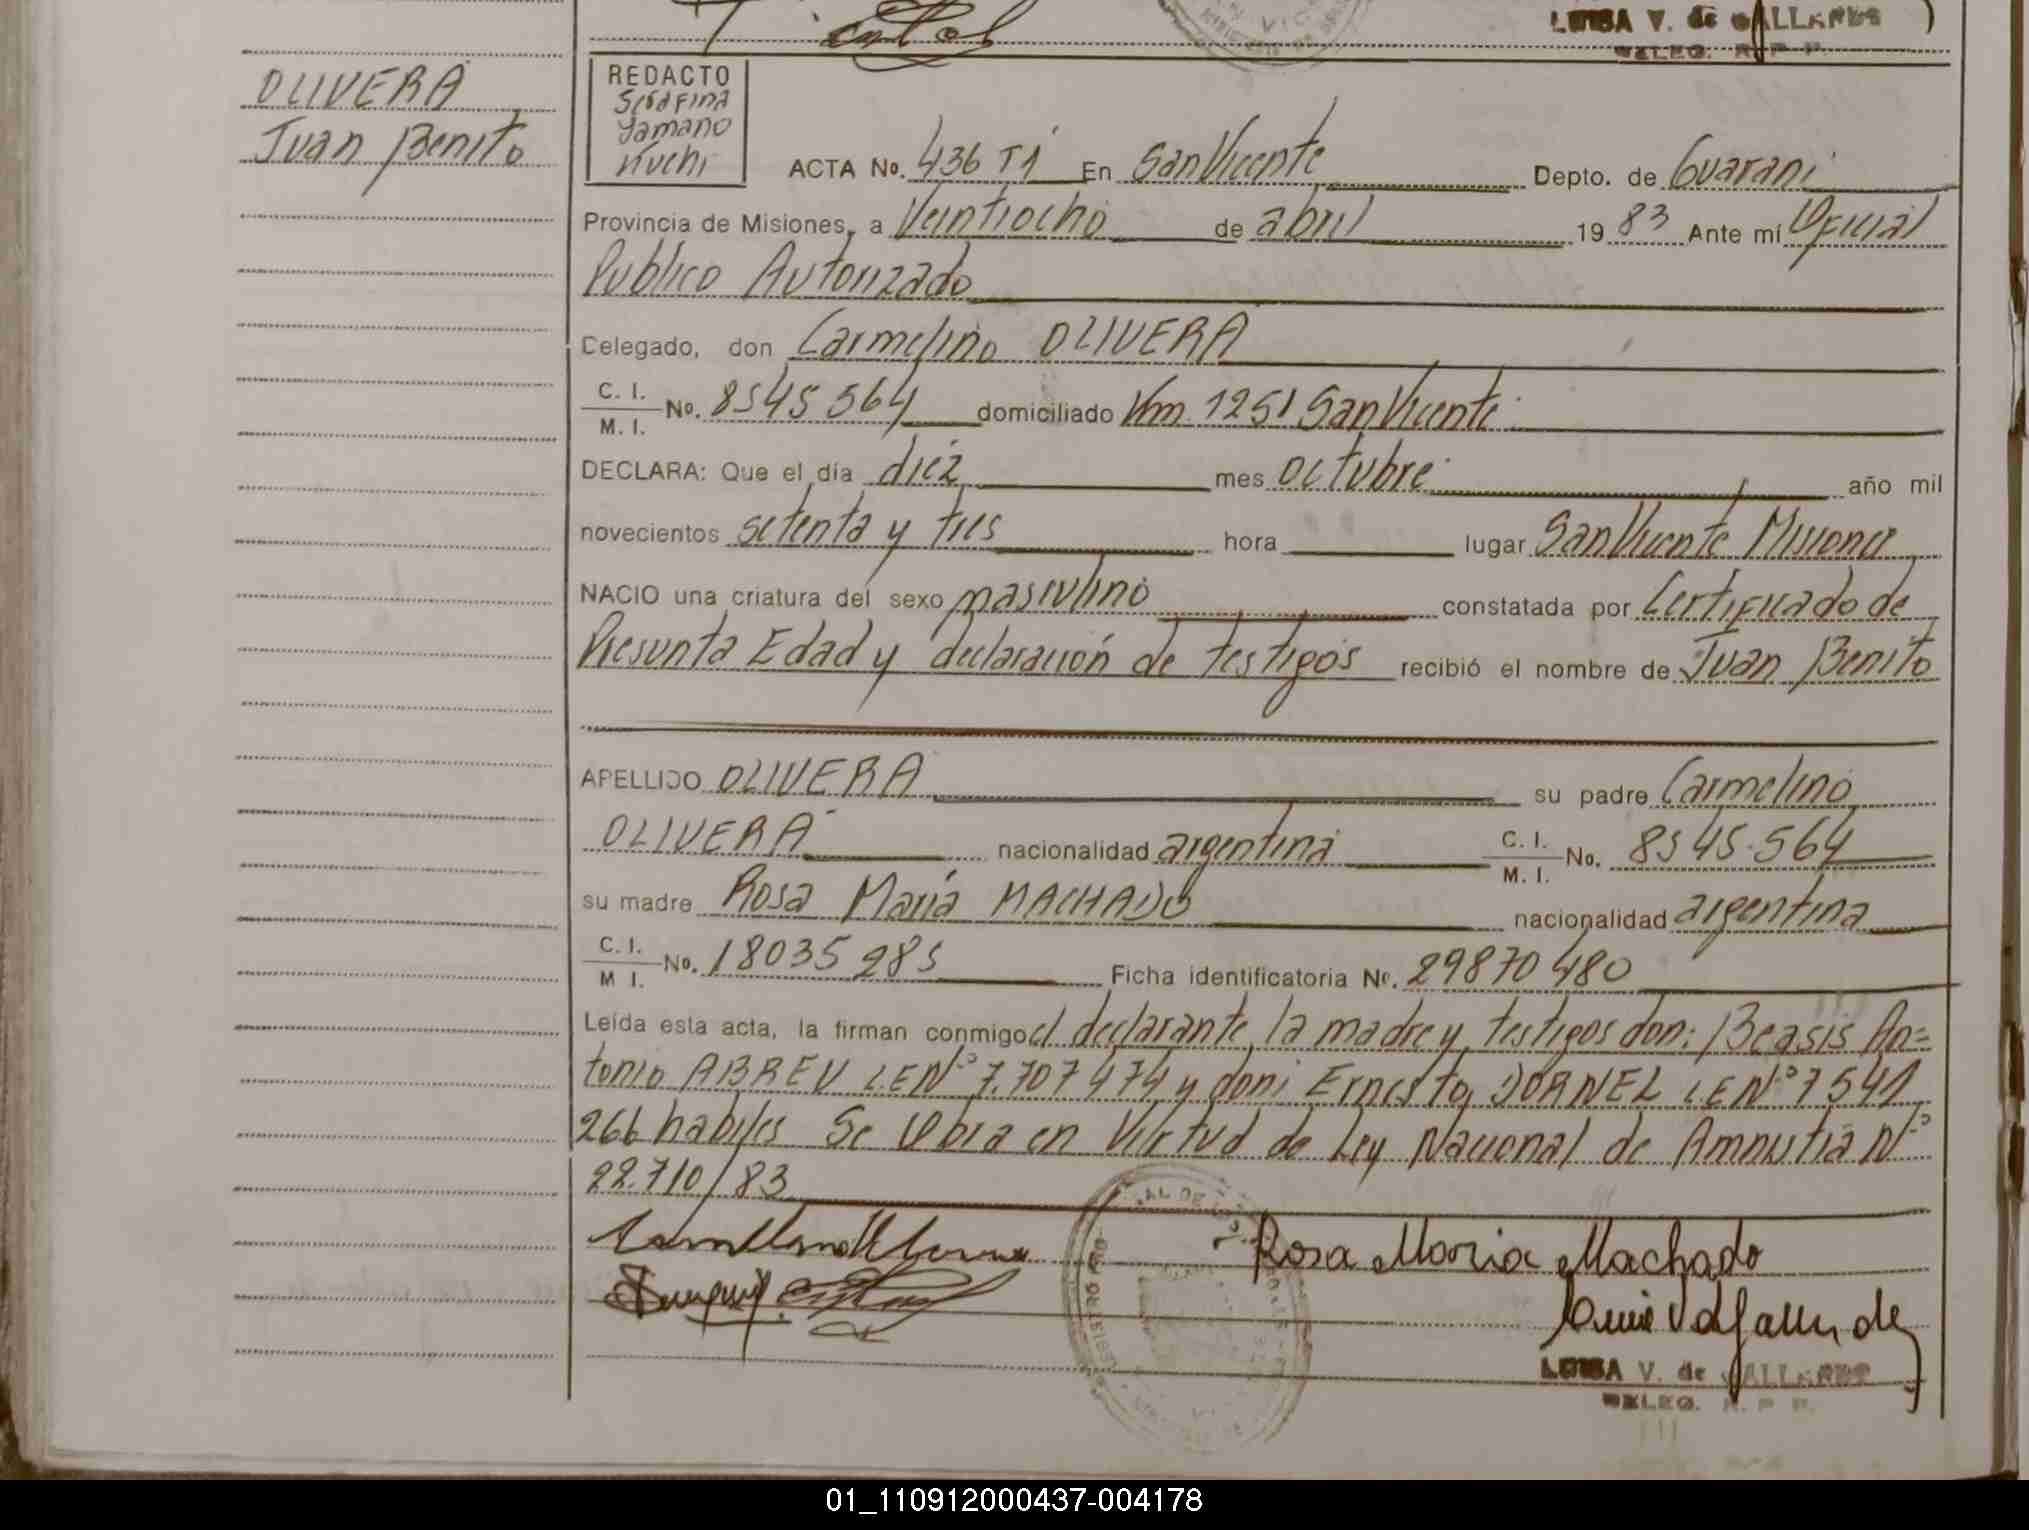 LUISA V. de GALLARDO
DELEG. R. P. P.
OLIVERA
Juan Benito
REDACTO
Serafina
Yamano
Kuchi
ACTA No. 436 T1 En San Vicente Depto. de Guarani
Provincia de Misiones, a Veintiocho de abril 19 83 Ante mí Oficial
Publico Autorizado
Celegado, don Carmelino OLIVERA
C. I.
M. I. No. 8545 564 domiciliado Km. 1251 San Vicente
DECLARA: Que el día diez mes octubre año mil
novecientos setenta y tres hora lugar San Vicente Misiones
NACIO una criatura del sexo masculino constatada por Certificado de
Presunta Edad y declaración de testigos recibió el nombre de Juan Benito
APELLIDO OLIVERA su padre Carmelino
OLIVERA nacionalidad argentina C. I. M. I. No. 8545.564
su madre Rosa María MACHADO nacionalidad argentina
C. I. M I. No. 18035 285 Ficha identificatoria Nº. 29870480
Leída esta acta, la firman conmigo el declarante, la madre y testigos don: Beasis An=
tonio ABREU L.E Nº 7.707 474 y don: Ernesto DORNEL L.E Nº 7541
266 habiles Se Obra en Virtud de Ley Nacional de Amnistia Nº
22.710/83
Rosa Maria Machado
LUISA V. de GALLARDO
DELEG. R. P. P.
01_110912000437-004178